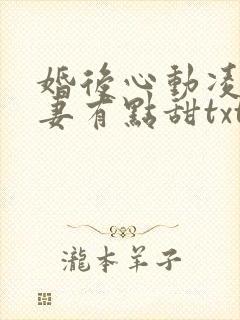 婚後心動凌
妻有點甜txt
瀧本羊子